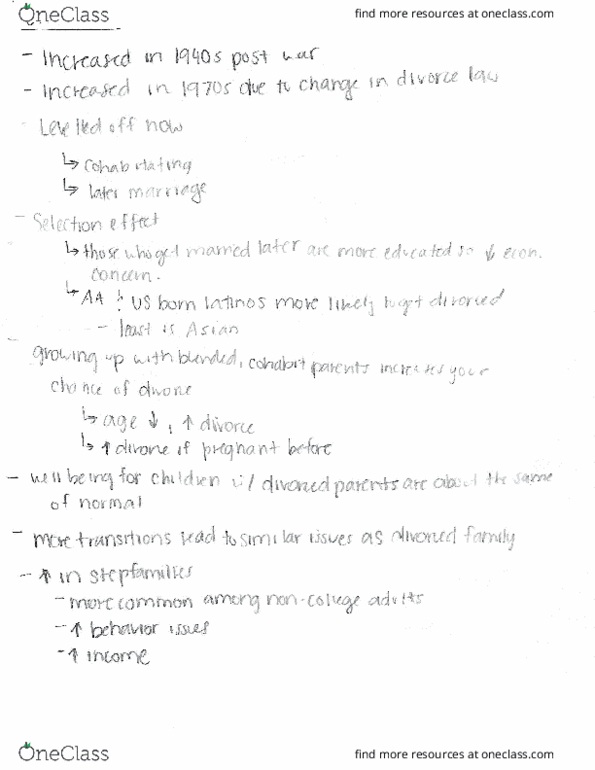 OneClass
find more resources at oneclass.com
- Increased in 1940s post war
- Increased in 1970s due to change in divorce law
- Levelled off now
↳ cohabitating
↳ later marriage
- Selection effect
↳ those who get married later are more educated so ↓ econ.
concern.
↳ AA & US born Latinos more likely to get divorced
- least is Asian
- growing up with blended, cohabit parents increases your
chance of divorce
↳ age ↓, ↑ divorce
↳ ↑ divorce if pregnant before
- well being for children w/ divorced parents are about the same
of normal
- more transitions lead to similar issues as divorced family
- ↑ in stepfamilies
- more common among non-college adults
- ↑ behavior issues
- ↑ income
OneClass
find more resources at oneclass.com